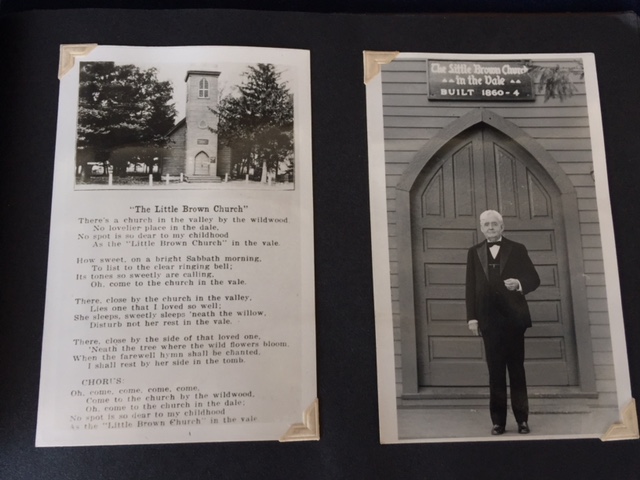 "The Little Brown Church"
There's a church in the valley by the wildwood
No lovelier place in the dale,
No spot is so dear to my childhood
As the "Little Brown Church" in the vale.
How sweet, on a bright Sabbath morning,
To list to the clear ringing bell;
Its tones so sweetly are calling,
Oh, come to the church in the vale.
There, close by the church in the valley,
Lies one that I loved so well;
She sleeps, sweetly sleeps 'neath the willow,
Disturb not her rest in the vale.
There, close by the side of that loved one,
'Neath the tree where the wild flowers bloom,
When the farewell hymn shall be chanted,
I shall rest by her side in the tomb.
CHORUS:
Oh, come, come, come, come,
Come to the church by the wildwood,
Oh, come to the church in the dale;
No spot is so dear to my childhood
As the "Little Brown Church" in the vale.
The Little Brown Church
in the Vale
BUILT 1860-4